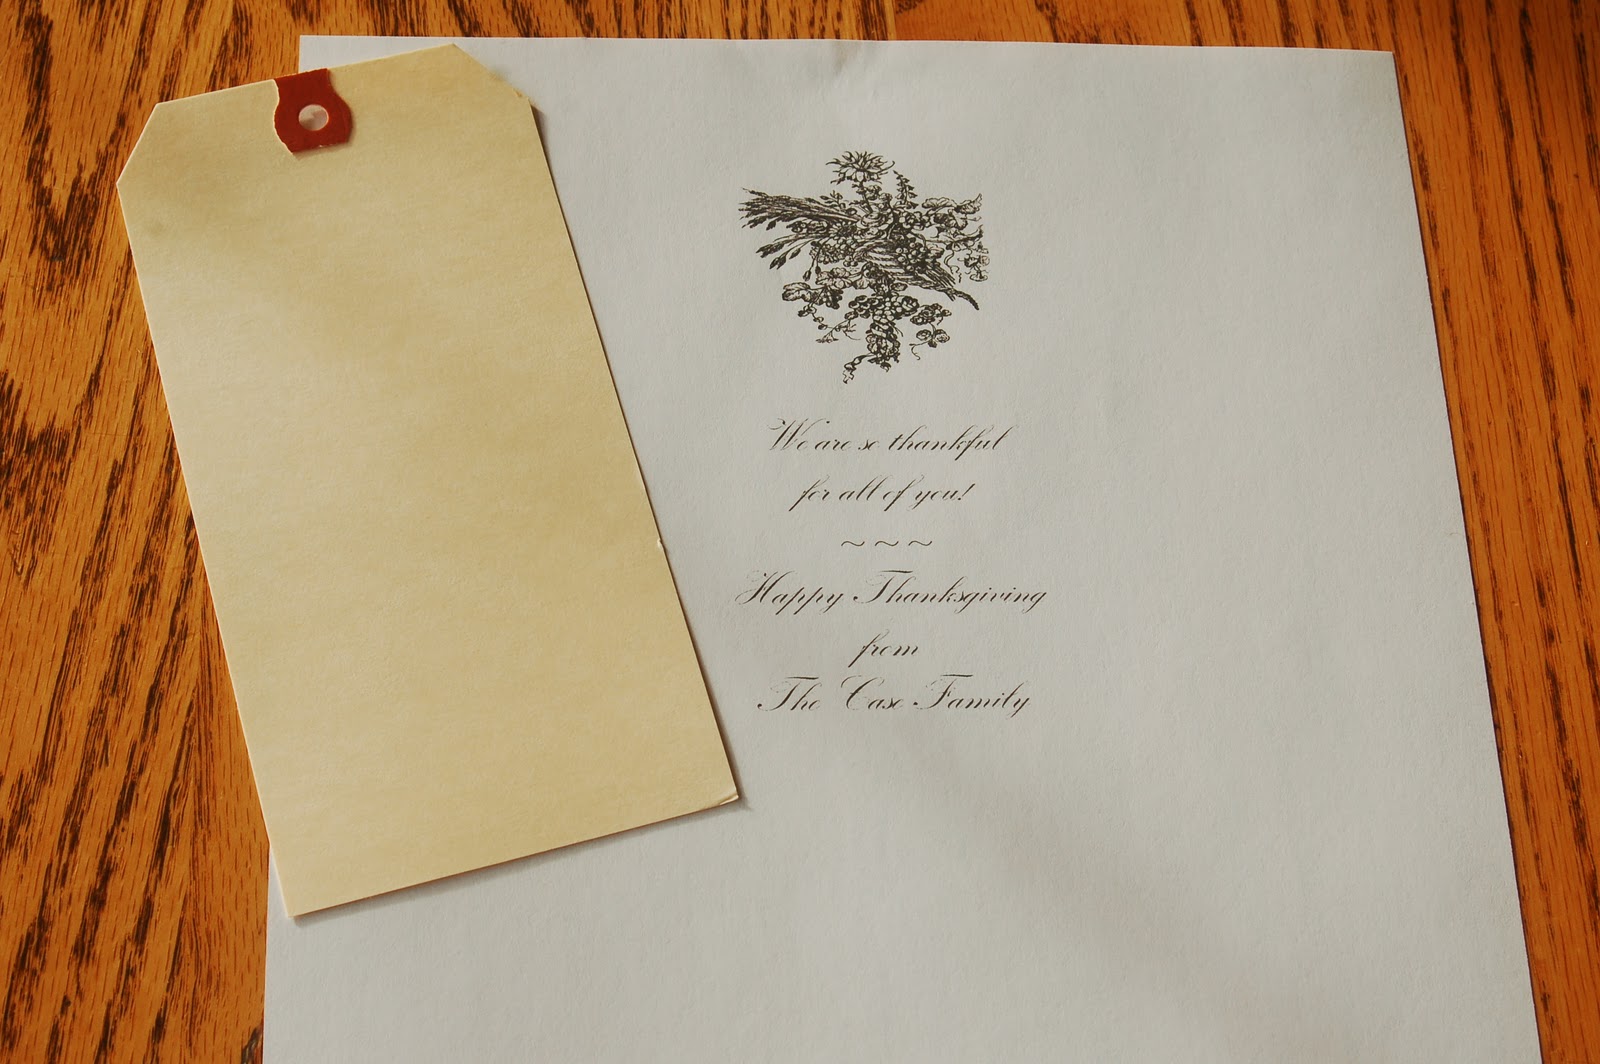 We are so thankful
for all of you!
~ ~ ~
Happy Thanksgiving
from
The Case Family